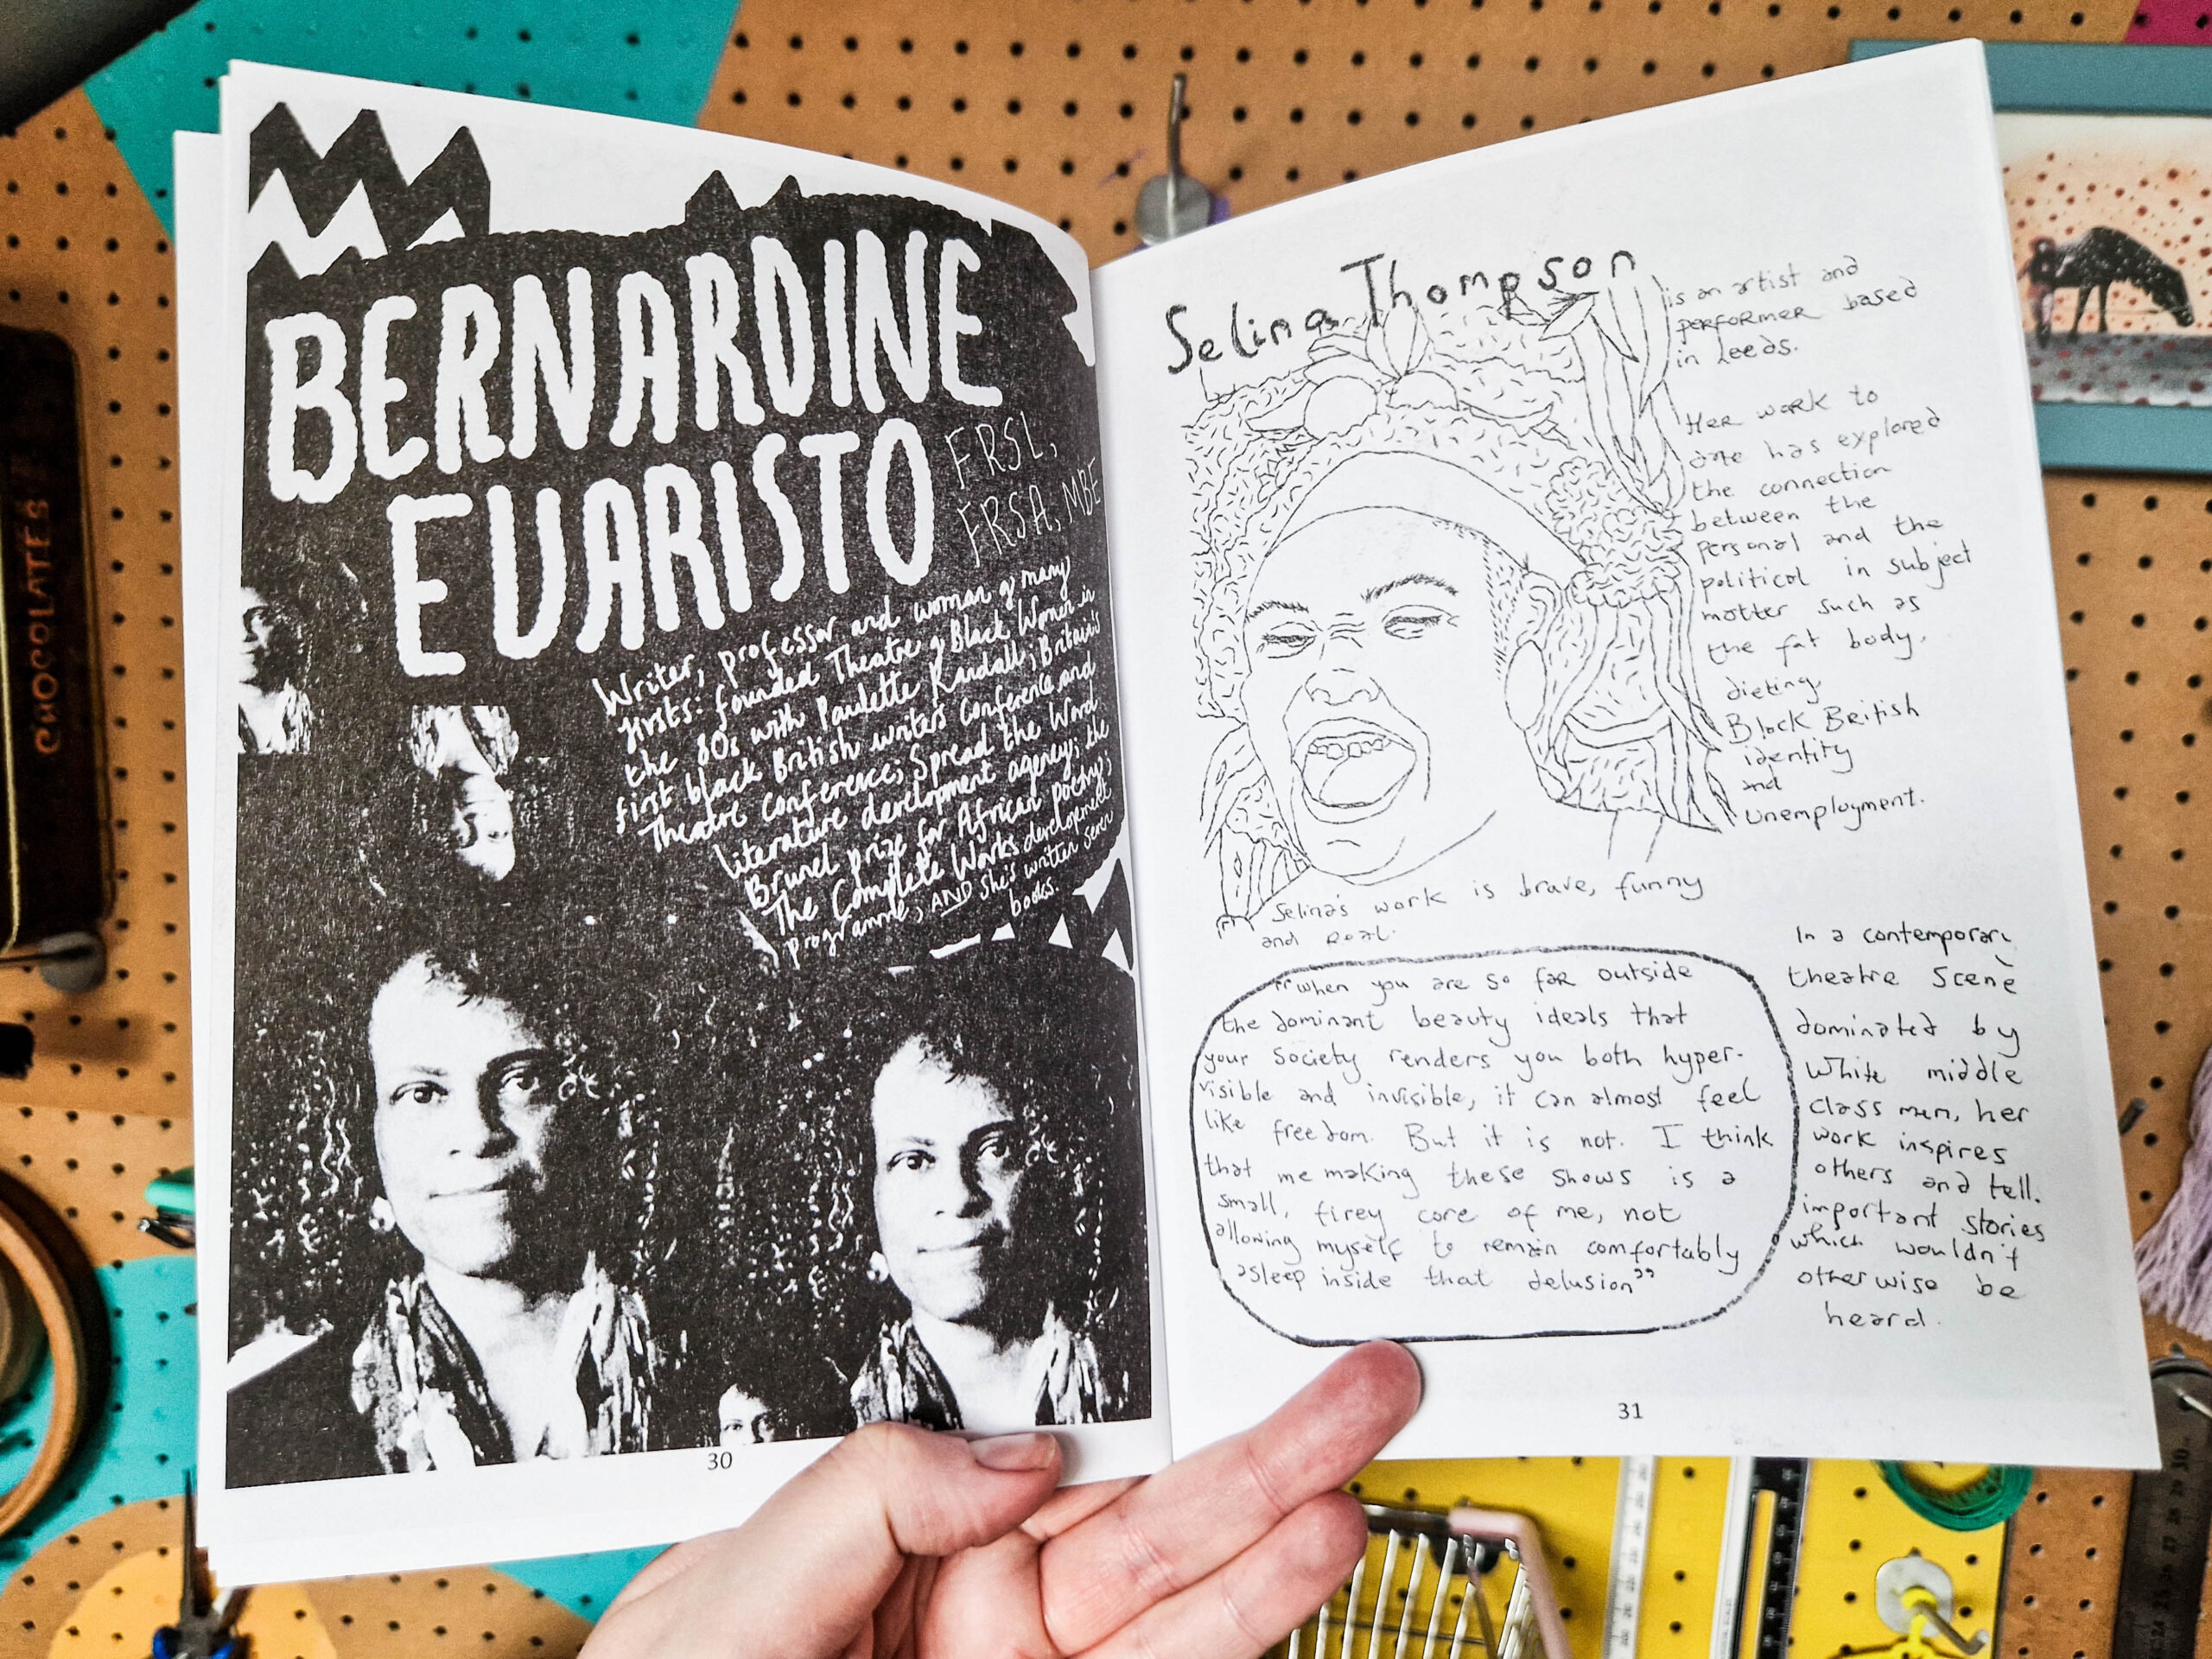 BERNARDINE
EVARISTO
FRSL,
FRSA, MBE
Writer, professor and woman of many
firsts: founded Theatre of Black Women in
the 80s with Paulette Randall; Britain's
first black British writers conference and
Theatre conference; Spread the Word
literature development agency; the
Brunel prize for African poetry;
The Complete Works development
programme, AND she's writter seven
books.
30
Selina Thompson
is an artist and
performer based
in Leeds.
Her work to
date has explored
the connection
between the
personal and the
political in subject
matter such as
the fat body,
dieting,
Black British
identity
and
unemployment.
Selina's work is brave, funny
and real.
"when you are so far outside
the dominant beauty ideals that
your society renders you both hyper-
visible and invisible, it can almost feel
like freedom. But it is not. I think
that me making these shows is a
small, firey core of me, not
allowing myself to remain comfortably
asleep inside that delusion"
In a contemporary
theatre scene
dominated by
White middle
class men, her
work inspires
others and tell.
important stories
which wouldn't
otherwise be
heard.
31
CHOCOLATES